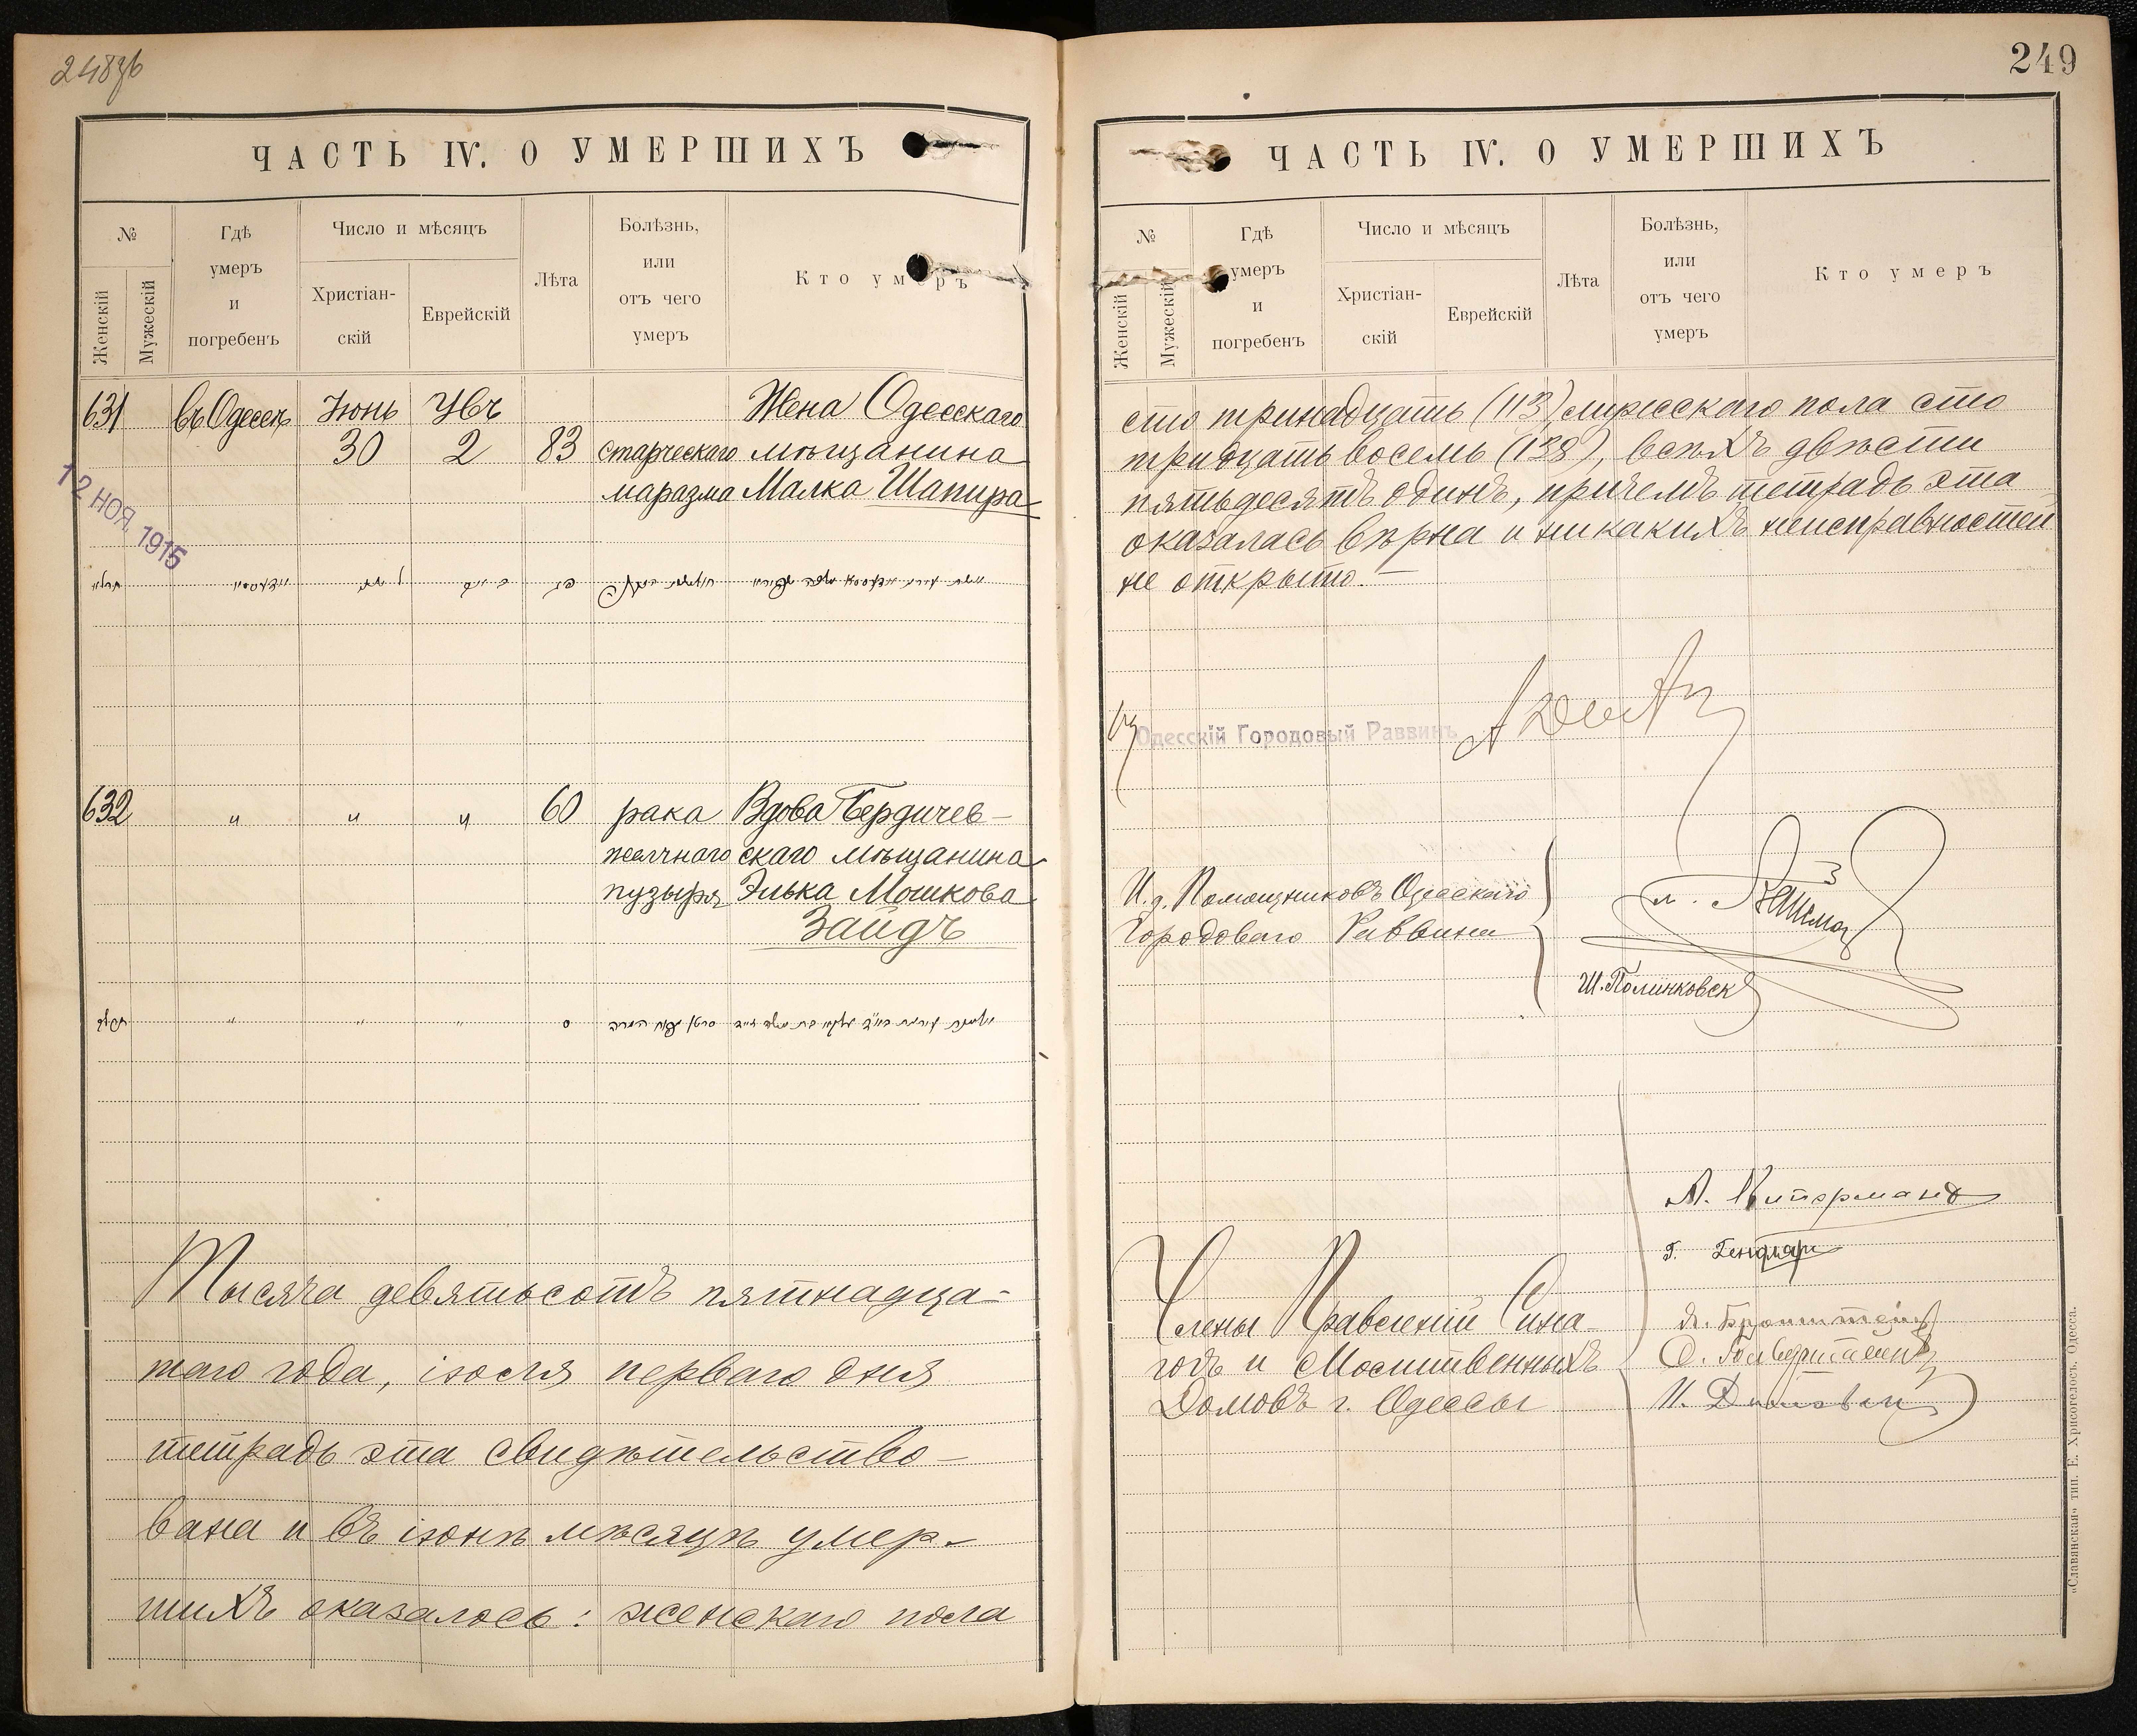 248 об
ЧАСТЬ IV. О УМЕРШИХЪ
№
Женскій
Мужескій
Гдѣ
умеръ
и
погребенъ
Число и мѣсяцъ
Христіан-
скій
Еврейскій
Лѣта
Болѣзнь,
или
отъ чего
умеръ
Кто умеръ
631 въ Одессѣ Іюнь Жена Одесскаго
30 2 83 старческаго мѣщанина
маразма Малка Шапира
12 НОЯ. 1915
632 " " " 60 рака Вдова Бердичев-
желчнаго скаго мѣщанина
пузыря Элька Мошкова
Зайдъ
Тысяча девятьсотъ пятнадца-
таго года, іюля перваго дня
тетрадь эта свидѣтельство-
вана и въ іюнѣ мѣсяцѣ умер-
шихъ оказалось: женскаго пола
249
ЧАСТЬ IV. О УМЕРШИХЪ
№
Женскій
Мужескій
Гдѣ
умеръ
и
погребенъ
Число и мѣсяцъ
Христіан-
скій
Еврейскій
Лѣта
Болѣзнь,
или
отъ чего
умеръ
Кто умеръ
сто тринадцать (113), мужескаго пола сто
тридцать восемь (138), всѣхъ двѣсти
пятьдесятъ одинъ, причемъ тетрадь эта
оказалась вѣрна и никакихъ неисправностей
не открыто.
Одесскій Городовый Раввинъ
И.д. Помощниковъ Одесскаго
Городоваго Раввина
Ш. Полинковск
А. Китерманъ
Г.
Члены Правленій Сина-
гогъ и Молитвенныхъ
Домовъ г. Одессы
«Славянская» тип. Е. Хрисогелосъ. Одесса.